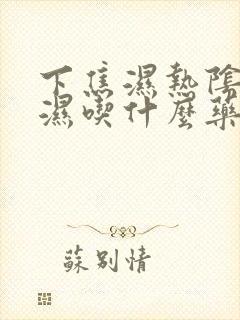 下焦濕熱陰
濕喫什麼藥
蘇別情